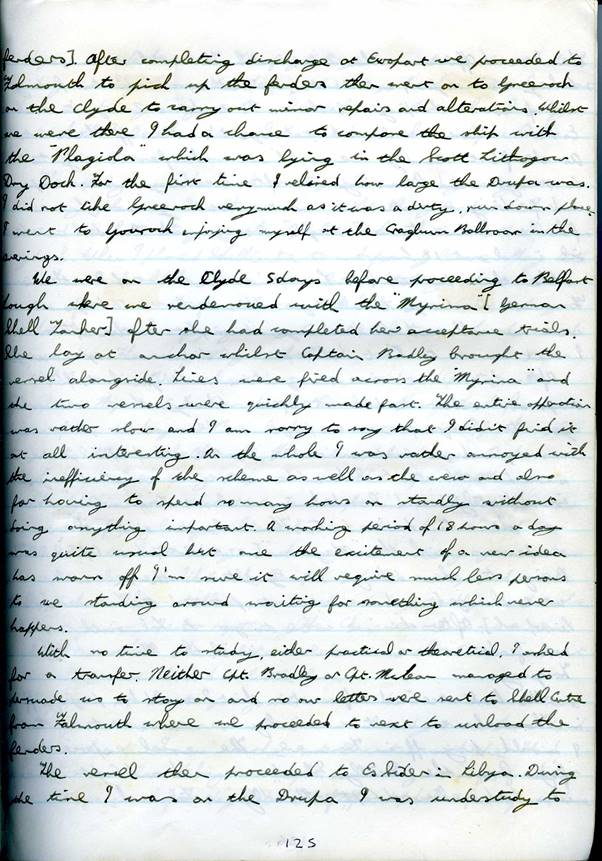 fenders]. After completing discharge at Ewopart we proceeded to
Falmouth to pick up the fenders then went on to Greenock
on the Clyde to carry out minor repairs and alterations. Whilst
we were there I had a chance to compare the ship with
the "Plagiola" which was lying in the Scott Lithogow
Dry Dock. For the first time I relised how large the Drupa was.
I did not like Greenock very much as it was a dirty, run down place,
I went to Gourock enjoying myself at the Cragburn Ballroom in the
evenings.
We were on the Clyde 5days before proceeding to Belfast
Lough where we rendezvoued with the "Myrina" [German
Shell Tanker] after she had completed her acceptance trials.
We lay at anchor whilst Captain Badley brought the
vessel alongside. Lines were fired across the "Myrina" and
the two vessels were quickly made fast. The entire opperation
was rather slow and I am sorry to say that I didn't find it
at all interesting. On the whole I was rather annoyed with
the inefficiency of the scheme as well as the crew and also
for having to spend so many hours on standby without
doing anything important. A working period of 18 hours a day
was quite usual but once the excitement of a new idea
has warn off I'm sure it will require much less persons
to we standing around waiting for something which never
happens.
With no time to study, eider practical or theoretical, I asked
for a transfer. Neither Cpt. Bradley or Cpt. McLean managed to
persuade us to stay on and so our letters were sent to Shell Centre
from Falmouth where we proceeded to next to unload the
fenders.
The vessel then proceeded to Es Sider in Libya. During
the time I was on the Drupa I was understudy to
125